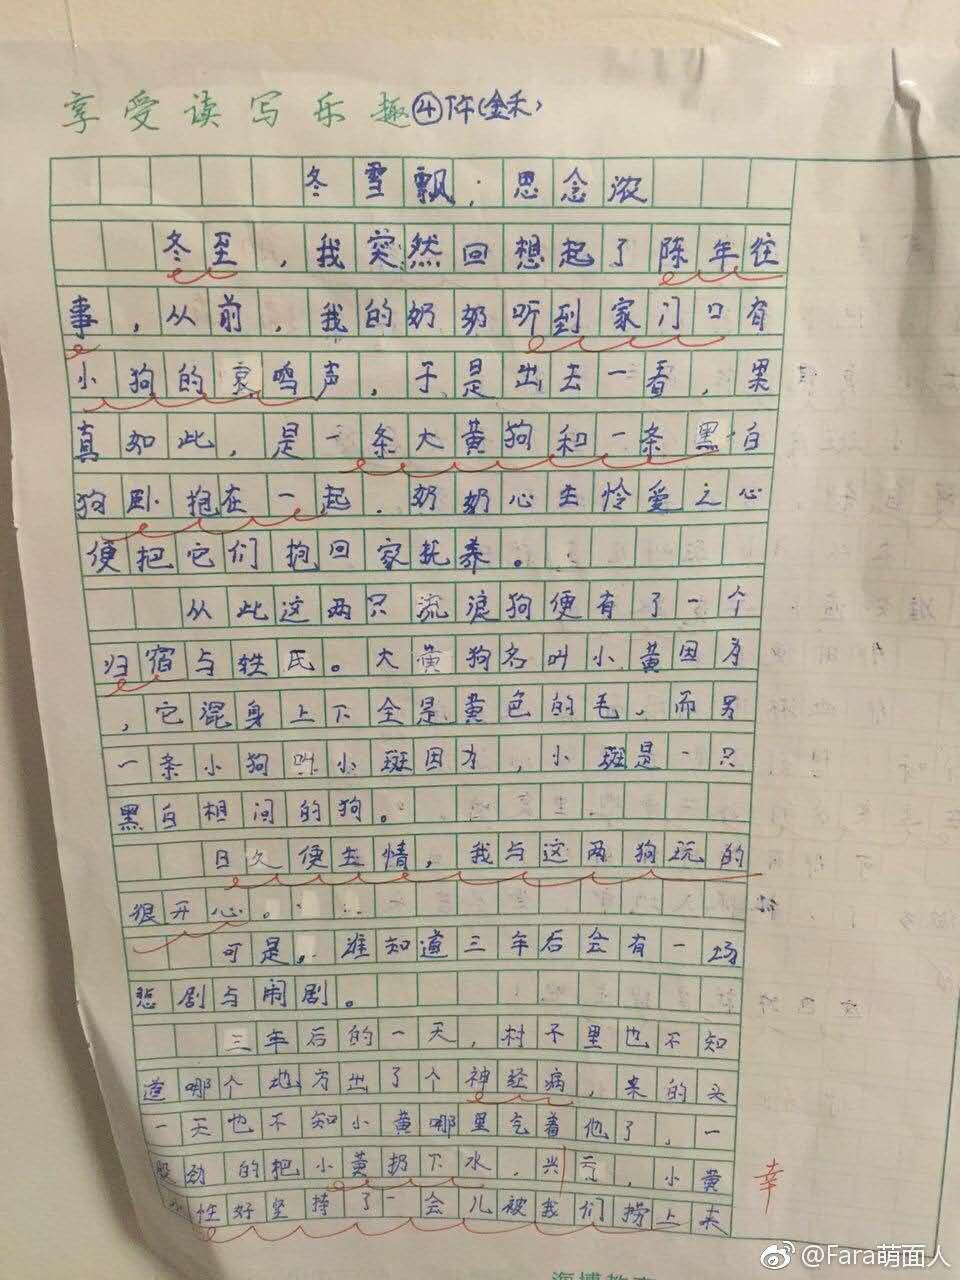 享受读写乐趣④下午(金禾)
冬雪飘;思念浓
冬至，我突然回想起了陈年往
事，从前，我的奶奶听到家门口有
小狗的哀鸣声，于是出去一看，果
真如此，是一条大黄狗和一条黑白
狗卧抱在一起．奶奶心生怜爱之心
便把它们抱回家托养。
从此这两只流浪狗便有了一个
归宿与姓氏。大黄狗名叫小黄因为
，它混身上下全是黄色的毛，而另
一条小狗叫小斑因为，小斑是一只
黑白相间的狗。
日久便生情，我与这两狗玩的
很开心。
可是，谁知道三年后会有一场
悲剧与闹剧。
三年后的一天，村不里也不知
道哪个地方出了个神经病，来的头
一天也不知小黄哪里乞着他了，一
股劲的把小黄扔下水，兴亏，小黄
幸
水性好坚持了一会儿被我们捞上来
海博教育
@Fara萌面人